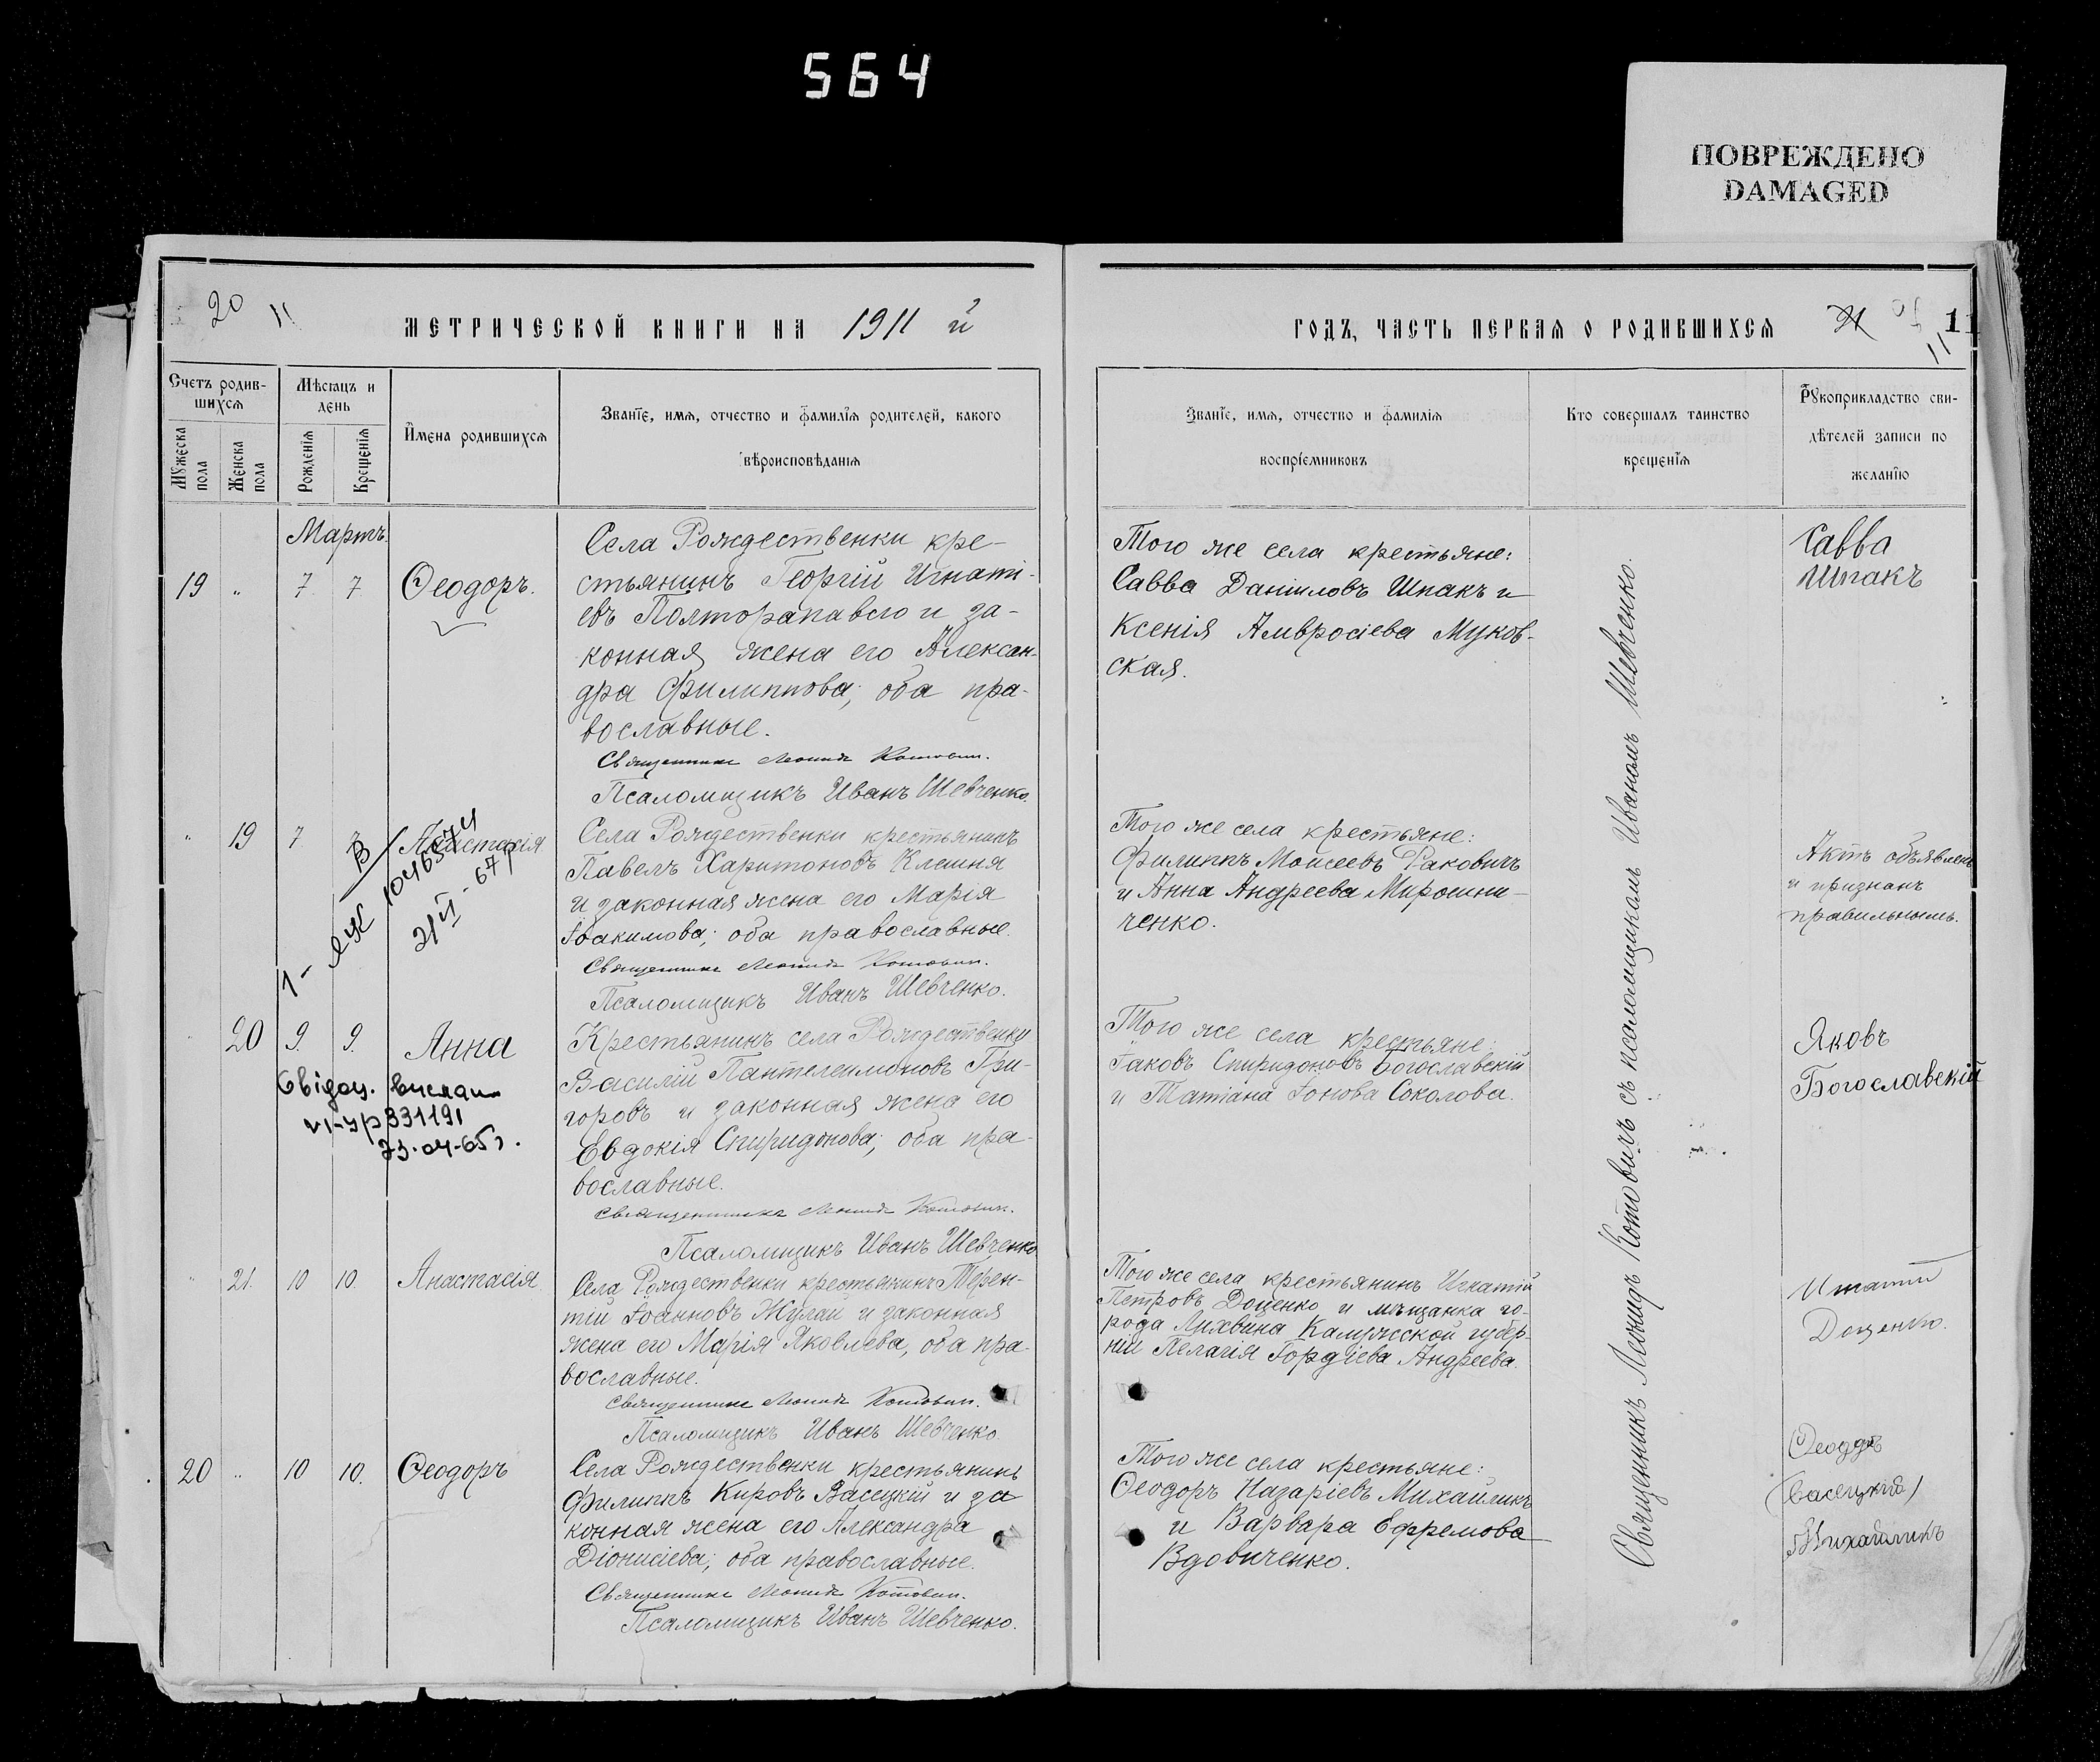 564
ПОВРЕЖДЕНО
DAMAGED
20 11
МЕТРИЧЕСКОЙ КНИГИ НА 1911 й
Счетъ родив-
шихся
Мѣсяцъ и
день
Мужеска
пола
Женска
пола
Рожденія
Крещенія
Имена родившихся
Званіе, имя, отчество и фамилія родителей, какого
вѣроисповѣданія
Мартъ.
19 " 7 7 Ѳеодоръ.
Села Рождественки кре-
стьянинъ Георгій Игнаті-
евъ Полторапавло и за-
конная жена его Алексан-
дра Филиппова; оба пра-
вославные.
Священникъ Леонидъ Котович.
Псаломщикъ Иванъ Шевченко.
" 19 7 7 Анастасія
Села Рождественки крестьянинъ
Павелъ Харитоновъ Клешня
и законная жена его Марія
Іоакимова; оба православные.
Священникъ Леонидъ Котович.
Псаломщикъ Иванъ Шевченко.
20 9. 9. Анна
Свідоц. вислан
331191
23.04-65 г.
Крестьянинъ села Рождественки
Василій Пантелеимоновъ Гри-
горовъ и законная жена его
Евдокія Спиридонова; оба пра-
вославные.
Священникъ Леонидъ Котович.
Псаломщикъ Иванъ Шевченко
" 21. 10 10. Анастасія
Села Рождественки крестьянинъ Терен-
тій Іоанновъ Жулай и законная
жена его Марія Яковлева, оба пра-
вославные.
Священникъ Леонидъ Котович.
Псаломщикъ Иванъ Шевченко
20 " 10 10. Ѳеодоръ
Села Рождественки крестьянинъ
Филиппъ Кировъ Васецкій и за
конная жена его Александра
Діонисіева; оба православные.
Священникъ Леонидъ Котович.
Псаломщикъ Иванъ Шевченко.
ГОДЪ, ЧАСТЬ ПЕРВАЯ О РОДИВШИХСЯ 21 11
11
Званіе, имя, отчество и фамилія
воспріемниковъ
Кто совершалъ таинство
крещенія
Рукоприкладство сви-
дѣтелей записи по
желанію
Того же села крестьяне:
Савва Даніиловъ Шпакъ и
Ксенія Амвросіева Муков-
ская.
Савва
Шпакъ
Того же села крестьяне:
Филиппъ Моисеевъ Ракович
и Анна Андреева Мирошни-
ченко.
Актъ объявленъ
и признанъ
правильнымъ.
Того же села крестьяне:
Іаковъ Спиридоновъ Богославскій
и Татіана Іонова Соколова.
Яковъ
Богославскій
Того же села крестьянинъ Игнатій
Петровъ Доценко и мѣщанка го-
рода Лихвина Калужской губер-
ніи Пелагія Гордіева Андреева.
Игнатій
Доценко.
Того же села крестьяне:
Ѳеодоръ Назаріевъ Михайликъ
и Варвара Ефремова
Вдовиченко.
Ѳеодоръ
(Васецкій)
Михайликъ
Священникъ Леонидъ Котовичъ съ псаломщикомъ Иваномъ Шевченко.